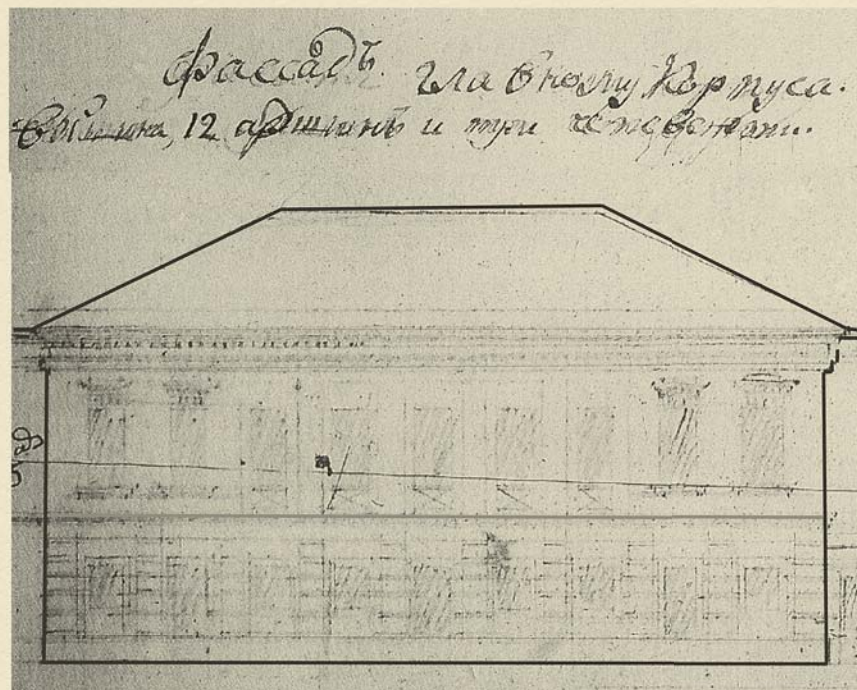 Фассадъ главному Корпуса.
Вышина, 12 аршинъ и три четверти.